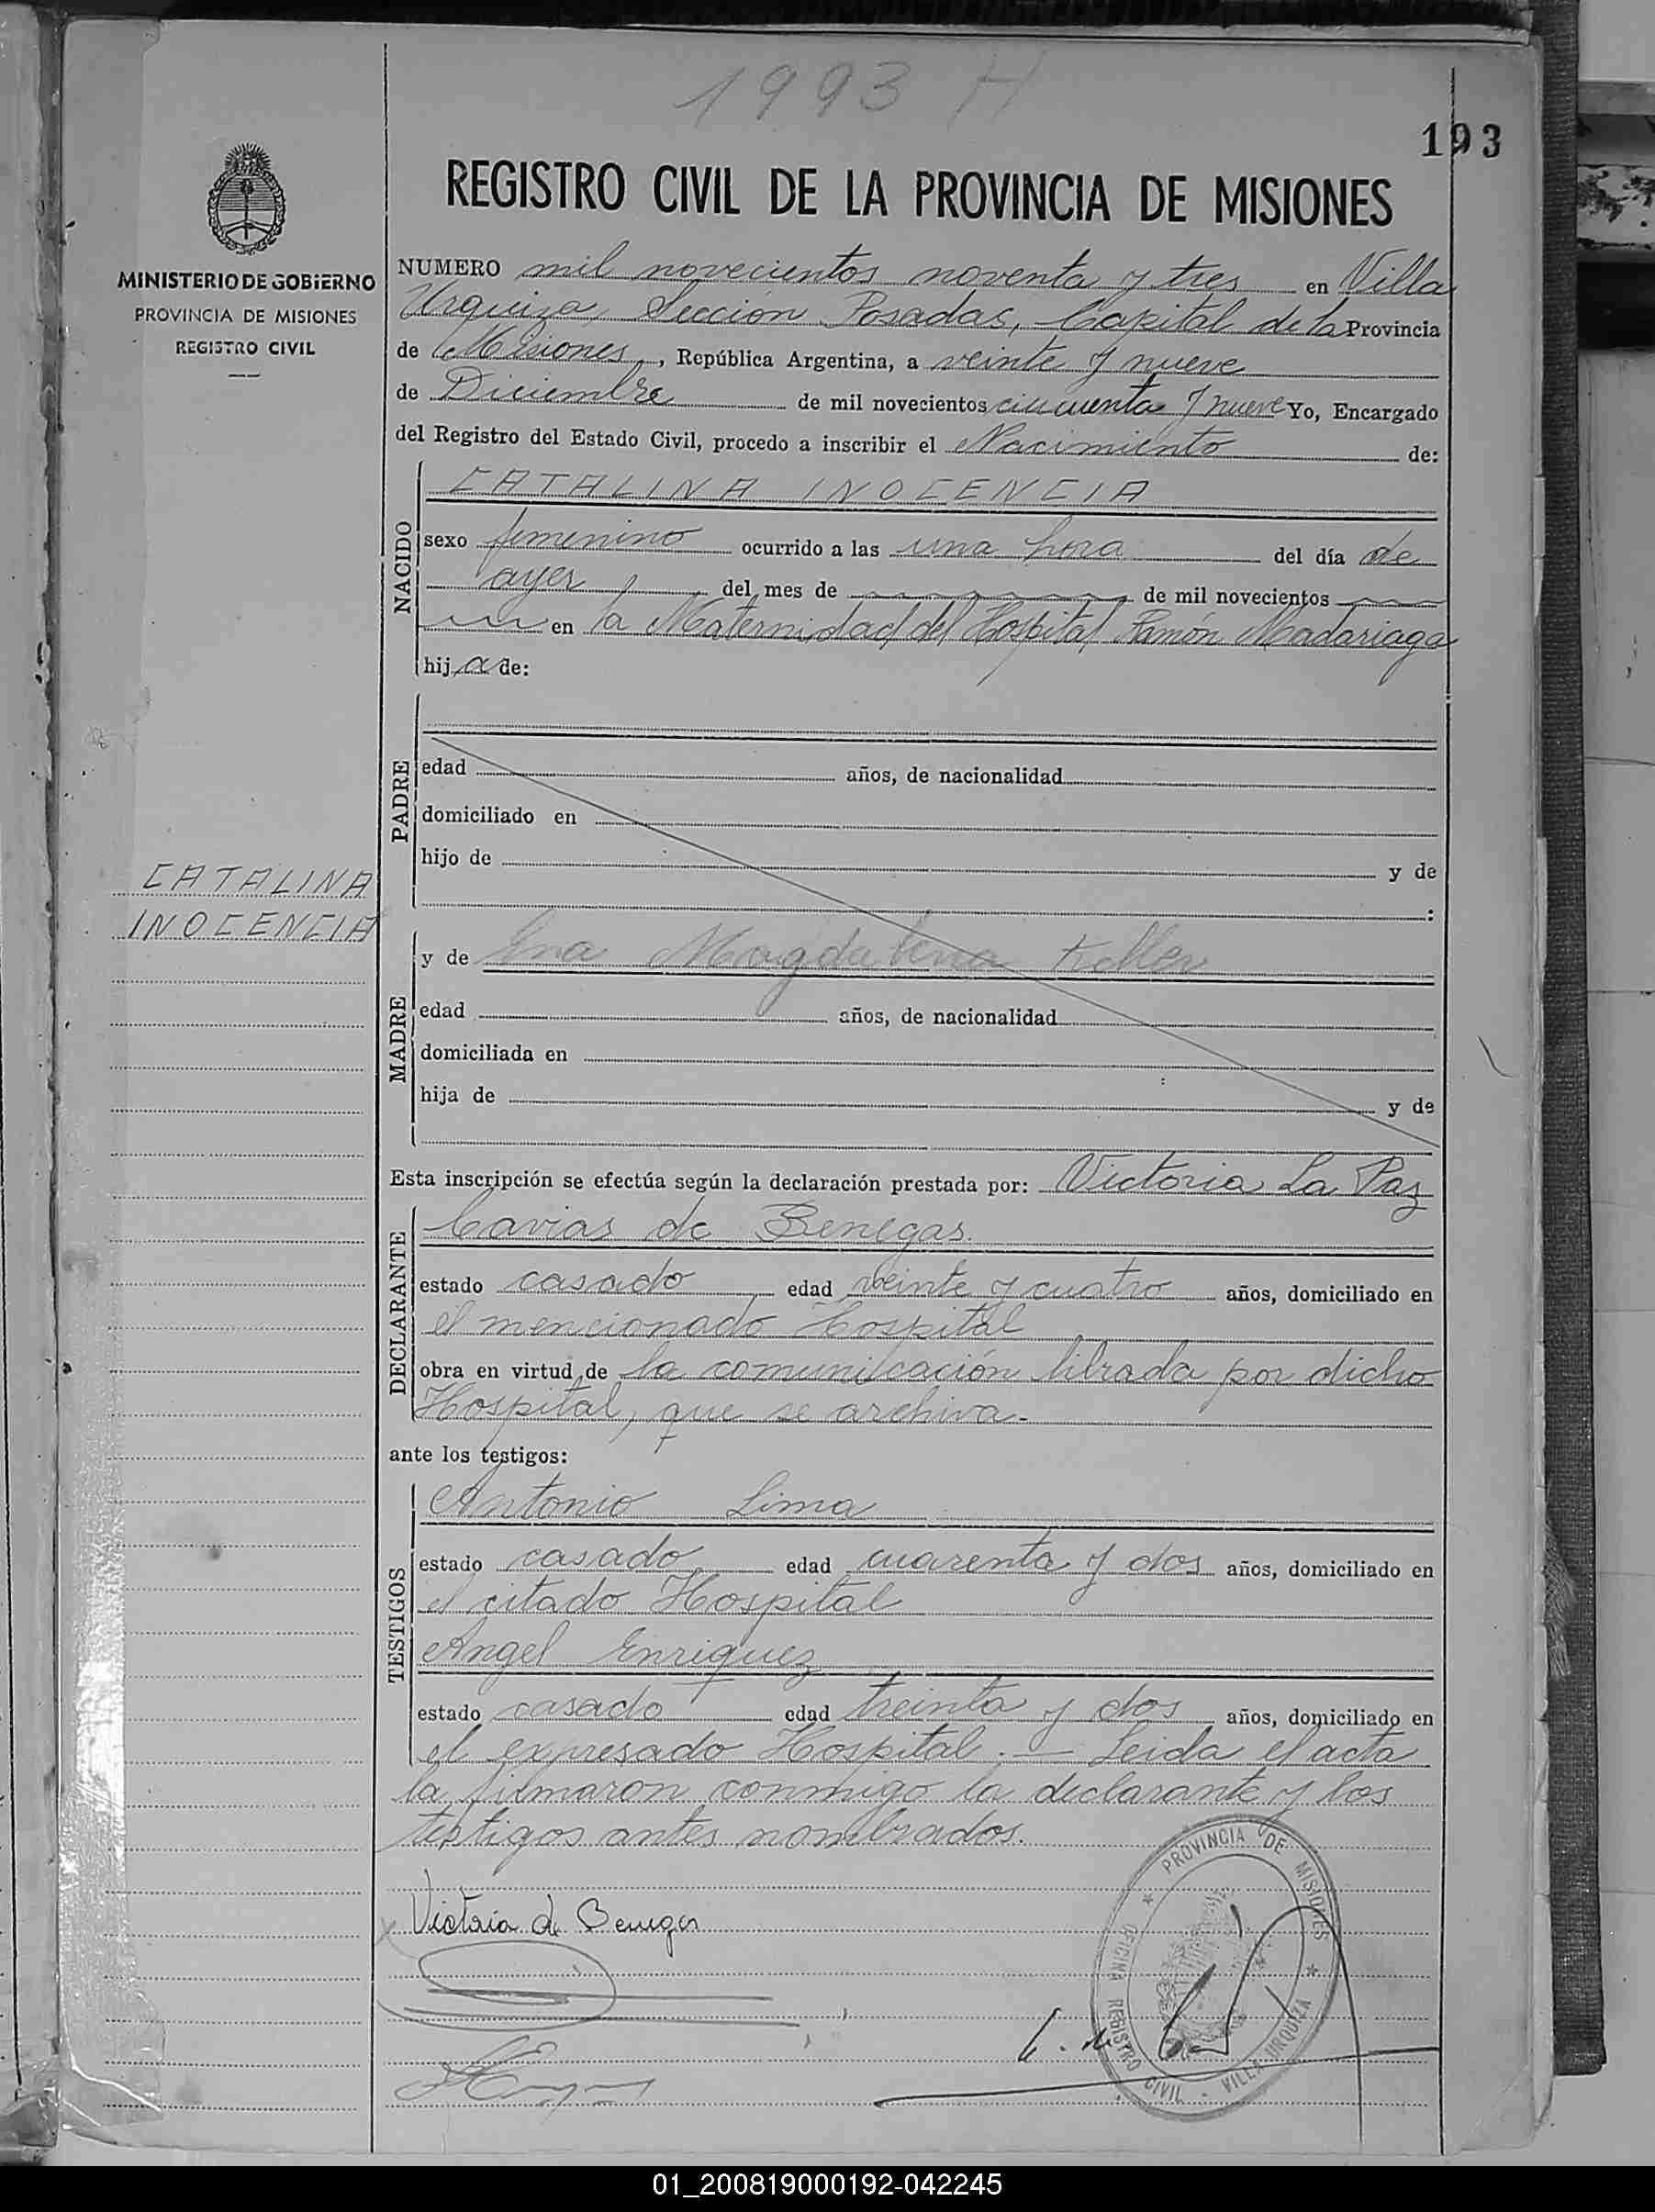 1993 H
193
MINISTERIO DE GOBIERNO
PROVINCIA DE MISIONES
REGISTRO CIVIL
REGISTRO CIVIL DE LA PROVINCIA DE MISIONES
NUMERO mil novecientos noventa y tres en Villa
Urquiza, Sección Posadas, Capital de la Provincia
de Misiones, República Argentina, a veinte y nueve
de Diciembre de mil novecientos cincuenta y nueve Yo, Encargado
del Registro del Estado Civil, procedo a inscribir el Nacimiento de:
NACIDO
CATALINA INOCENCIA
sexo femenino ocurrido a las una hora del día de
ayer del mes de de mil novecientos
en la Maternidad del Hospital Ramón Madariaga
hija de:
PADRE
edad años, de nacionalidad
domiciliado en
hijo de y de
:
CATALINA
INOCENCIA
MADRE
y de Ana Magdalena Keller
edad años, de nacionalidad
domiciliada en
hija de y de
Esta inscripción se efectúa según la declaración prestada por: Victoria La Paz
DECLARANTE
Cavias de Benegas.
estado casado edad veinte y cuatro años, domiciliado en
el mencionado Hospital
obra en virtud de la comunicación librada por dicho
Hospital, que se archiva.-
ante los testigos:
TESTIGOS
Antonio Lima
estado casado edad cuarenta y dos años, domiciliado en
el citado Hospital
Angel Enriquez
estado casado edad treinta y dos años, domiciliado en
el expresado Hospital. — Leida el acta
la firmaron conmigo la declarante y los
testigos antes nombrados.
Victoria de Benegas
PROVINCIA DE MISIONES
OFICINA REGISTRO CIVIL - VILLA URQUIZA
01_200819000192-042245